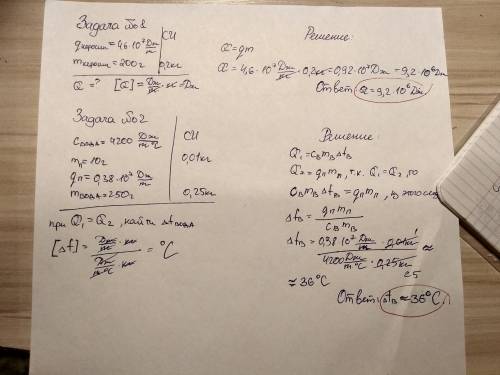 Задача №1
СИ
qкеросин = 4,6·10⁷ Дж/кг
mкеросин = 200г | 0,2кг
Q = ? [Q] = Дж/кг · кг = Дж
Решение:
Q = qm
Q = 4,6·10⁷ Дж/кг · 0,2кг = 0,92·10⁷ Дж = 9,2·10⁶ Дж
Ответ: Q = 9,2·10⁶ Дж
Задача №2
Cвода = 4200 Дж/m°C | СИ
mп = 10г | 0,01кг
qп = 0,38·10⁷ Дж/m
mвода = 250г | 0,25кг
при Q₁ = Q₂, найти Δtвода
[Δt] = (Дж/кг · кг)/(Дж/кг°C · кг) = °C
Решение:
Q₁ = CвmвΔtв
Q₂ = qпmп, т.к. Q₁ = Q₂, то
CвmвΔtв = qпmп, из
Δtв = qпmп/Cвmв
Δtв = (0,38·10⁷ Дж/m · 0,01кг)/(4200 Дж/m°C · 0,25кг) ≈
1
25
≈ 36°C
Ответ: Δtв ≈ 36°C.